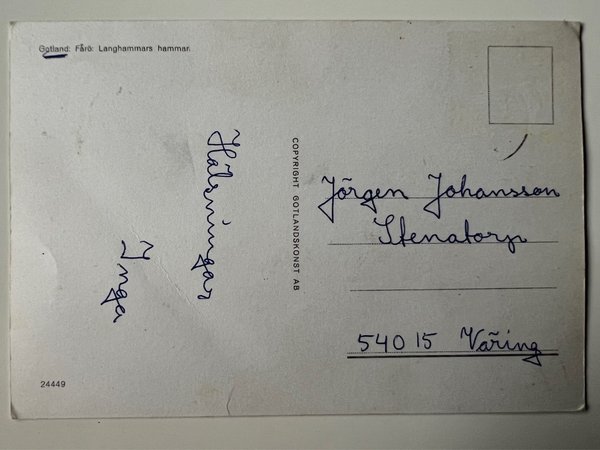 Gotland: Fårö: Langhammars hammar.
Hälsningar
Inga
COPYRIGHT GOTLANDSKONST AB
Jörgen Johansson
Stenatorp
54015 Väring
24449